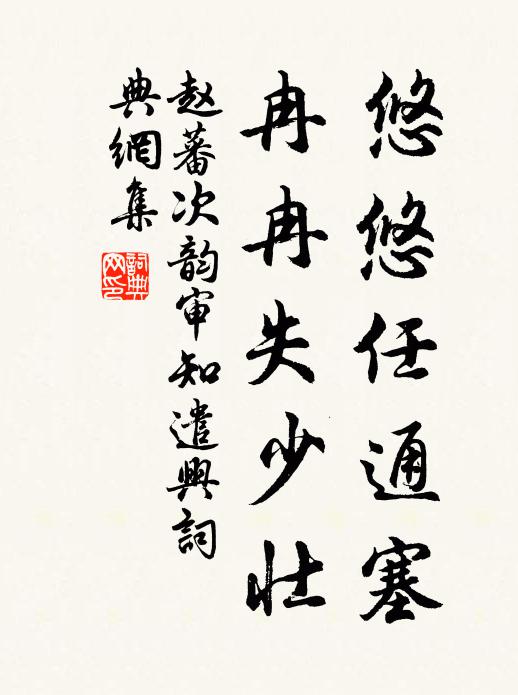 悠悠任通塞
冉冉失少壮
赵蕃次韵审知遣興詞
典網集
詞典
网印